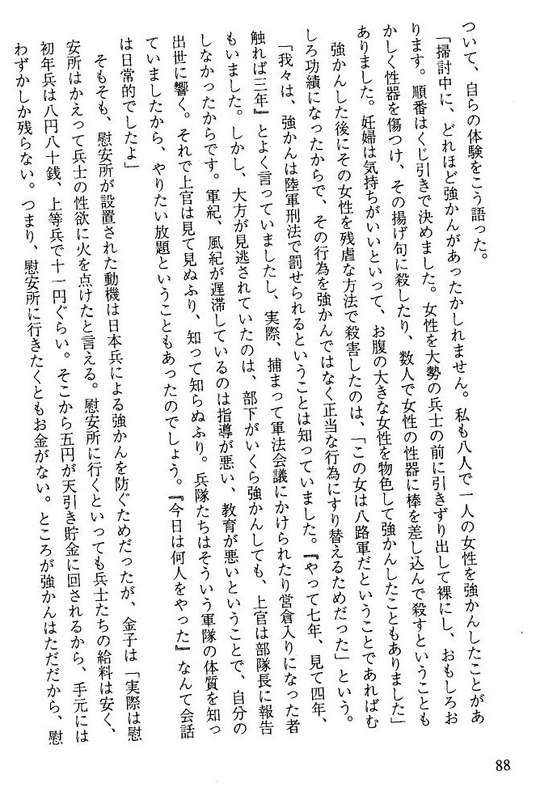 ついて、自らの体験をこう語った。
「掃討中に、どれほど強かんがあったかしれません。私も八人で一人の女性を強かんしたことがあ
ります。順番はくじ引きで決めました。女性を大勢の兵士の前に引きずり出して裸にし、おもしろお
かしく性器を傷つけ、その揚げ句に殺したり、数人で女性の性器に棒を差し込んで殺すということも
ありました。妊婦は気持ちがいいといって、お腹の大きな女性を物色して強かんしたこともありました」
強かんした後にその女性を残虐な方法で殺害したのは、「この女は八路軍だということであればむ
しろ功績になったからで、その行為を強かんではなく正当な行為にすり替えるためだった」という。
「我々は、強かんは陸軍刑法で罰せられるということは知っていました。『やって七年、見て四年、
触れば三年』とよく言っていましたし、実際、捕まって軍法会議にかけられたり営倉入りになった者
もいました。しかし、大方が見逃されていたのは、部下がいくら強かんしても、上官は部隊長に報告
しなかったからです。軍紀、風紀が遅滞しているのは指導が悪い、教育が悪いということで、自分の
出世に響く。それで上官は見て見ぬふり、知って知らぬふり。兵隊たちはそういう軍隊の体質を知っ
ていましたから、やりたい放題ということもあったのでしょう。『今日は何人をやった』なんて会話
は日常的でしたよ」
そもそも、慰安所が設置された動機は日本兵による強かんを防ぐためだったが、金子は「実際は慰
安所はかえって兵士の性欲に火を点けたと言える。慰安所に行くといっても兵士たちの給料は安く、
初年兵は八円八十銭、上等兵で十一円ぐらい。そこから五円が天引き貯金に回されるから、手元には
わずかしか残らない。つまり、慰安所に行きたくともお金がない。ところが強かんはただだから、慰
88